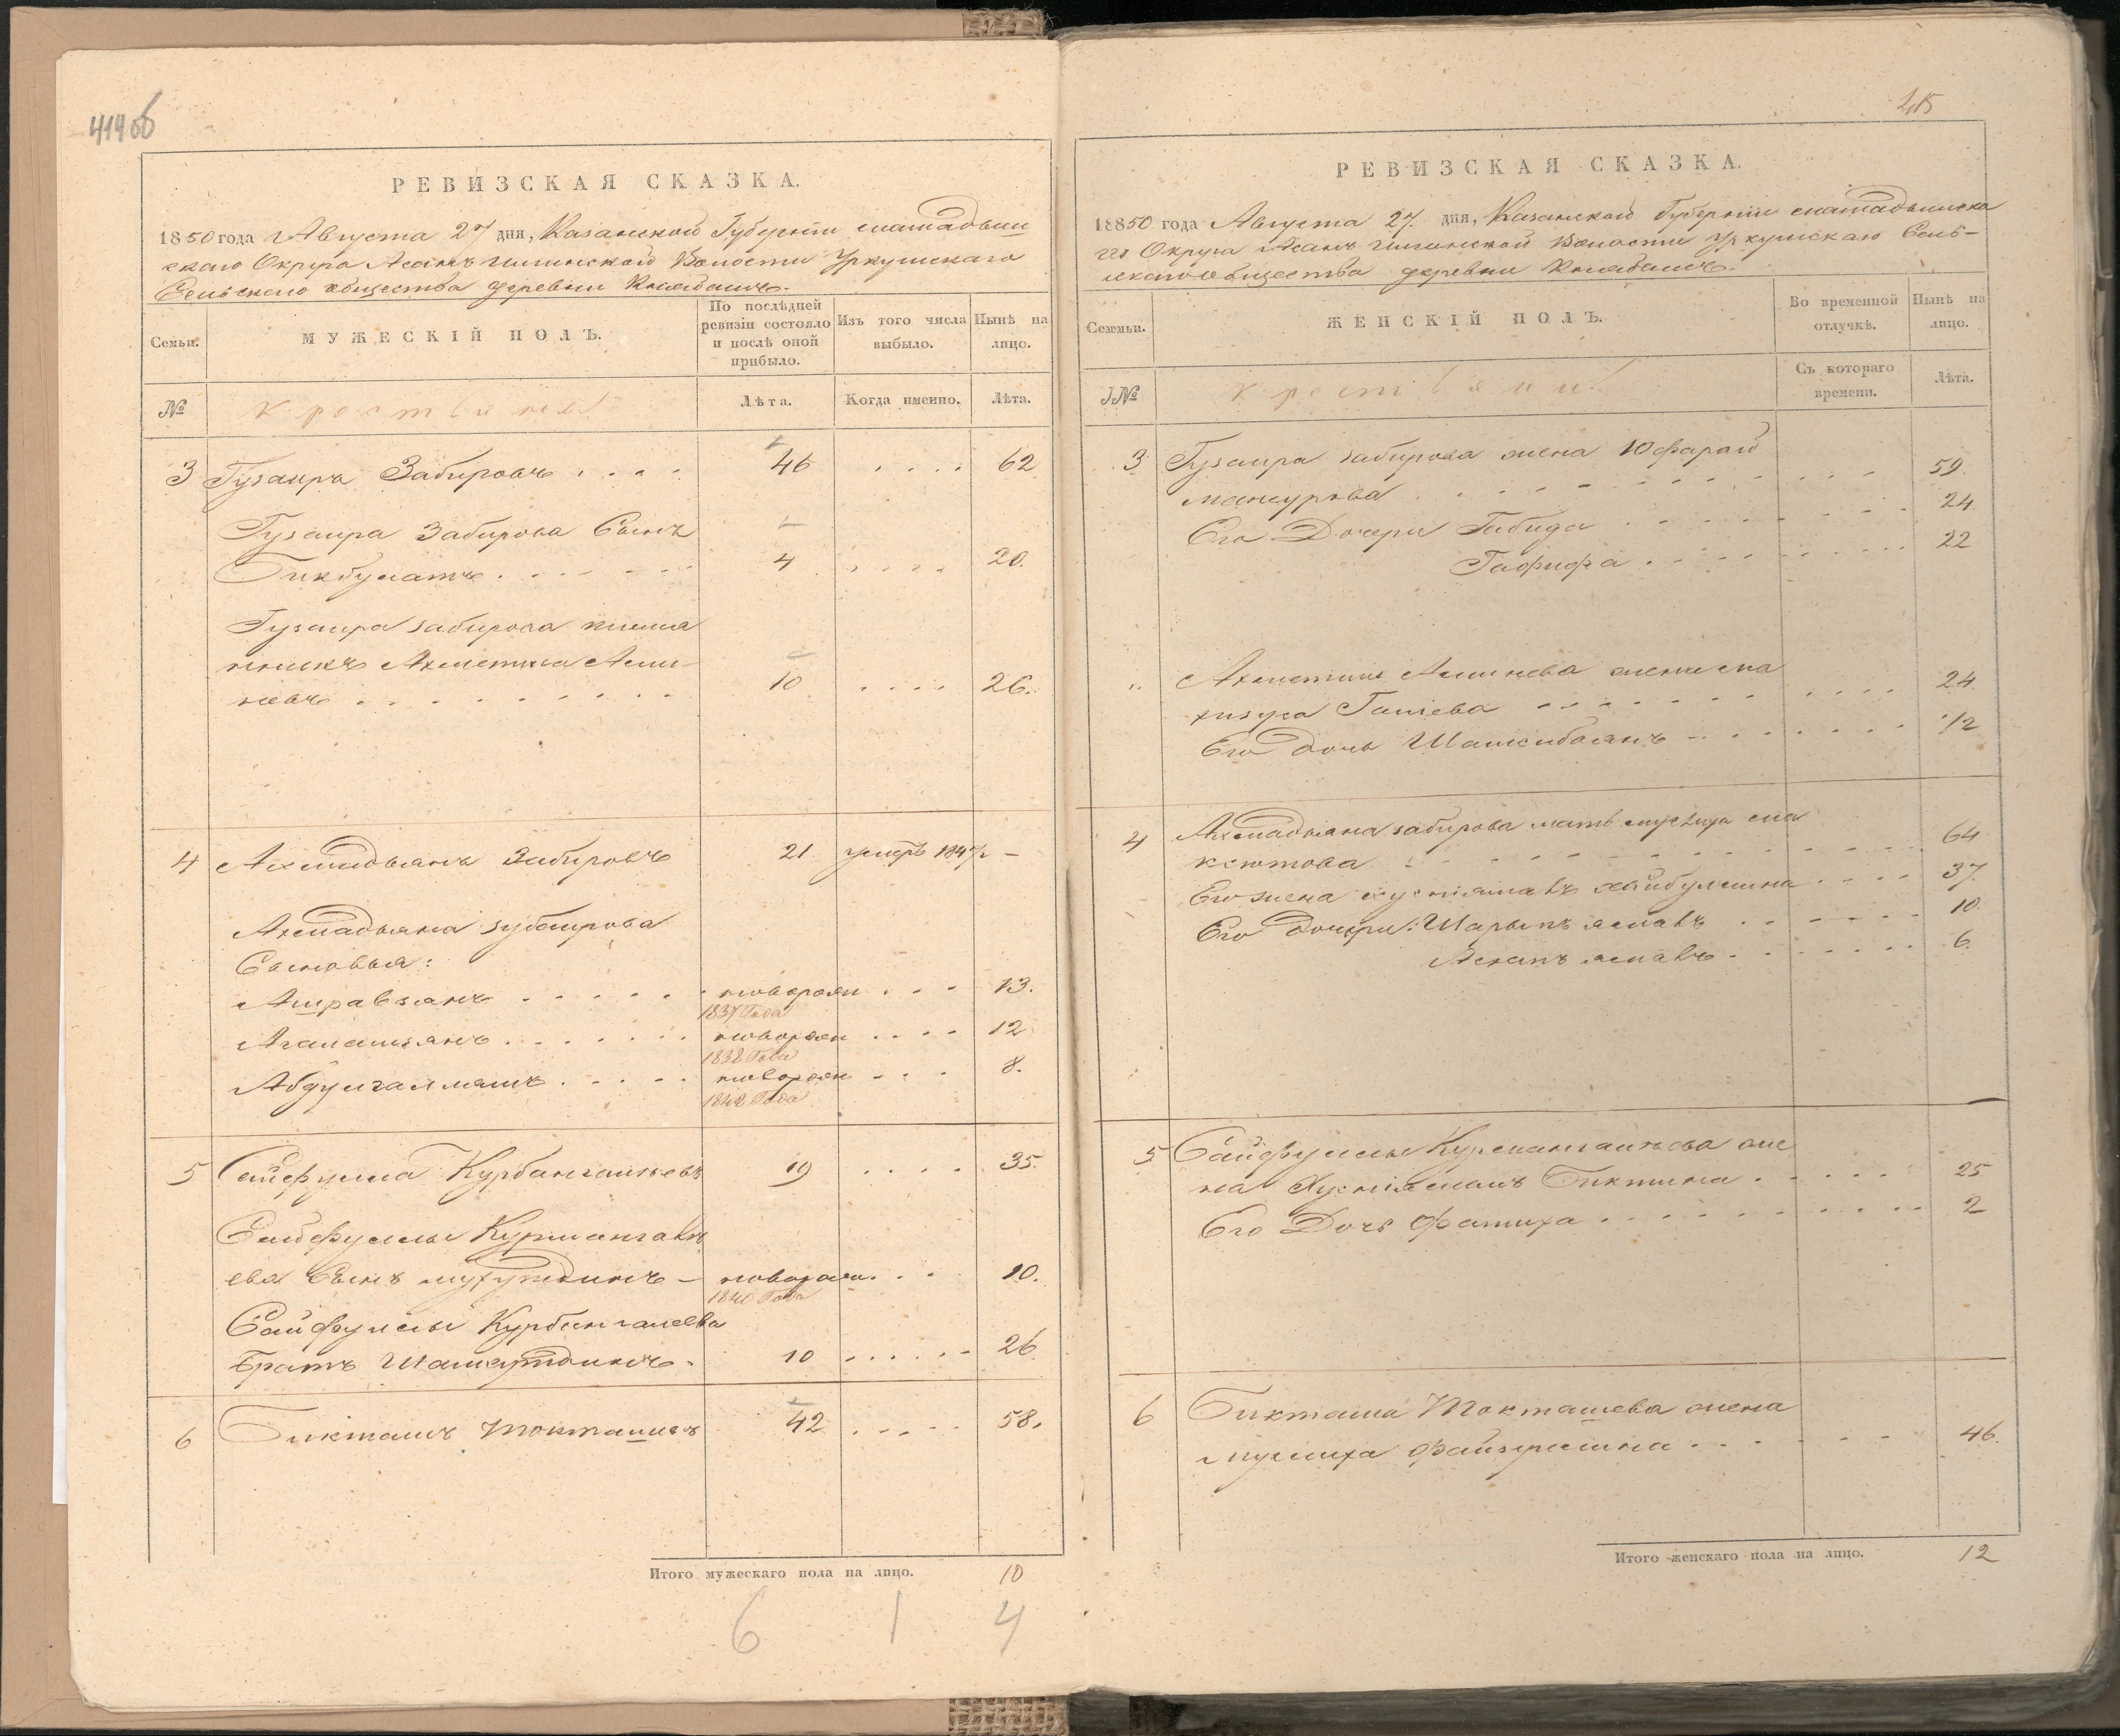 414об
РЕВИЗСКАЯ СКАЗКА.
1850 года Августа 27 дня, Казанской Губернии мамадыш
скаго Округа Асанъ Илгинской Волости Уркушскаго
Сельскаго общества деревни
Семьи.
МУЖЕСКІЙ ПОЛЪ.
По послѣдней ревизіи состояло и послѣ оной прибыло.
Изъ того числа выбыло.
Нынѣ на лицо.
№
крестьяне
Лѣта.
Когда именно.
Лѣта.
3 Гузаиръ Забировъ 46 62
Гузаира Забирова Сынъ
Бикбулатъ 4 20.
Гузаира Забирова племя
нникъ Ахметша Ами-
невъ 10 26.
4 Ахмадьянъ Забировъ 21. умеръ 1847г –
Ахмадьяна зубаирова
Сыновья:
Амравзянъ новорожен 13.
1837 Года
Агалашзянъ новорожен 12
1838 Года
новорожен 8.
1842 Года
5 Сайфулла Курбангалѣевъ 19 35.
Сайфуллы Курмангалѣ
ева Сынъ – новорожен 10.
1840 Года
Сайфуллы Курбангалеева
Братъ Шамсутдинъ 10 26
6 Бикташъ Токташевъ 42 58.
Итого мужескаго пола на лицо. 10
6 1 4
415
РЕВИЗСКАЯ СКАЗКА.
18850 года Августа 27. дня, Казанской Губернии мамадышска
го Округа Асанъ Илгинской Волости Уркушскаго Сель-
скаго общества деревни
Семьи.
ЖЕНСКІЙ ПОЛЪ.
Во временной отлучкѣ.
Нынѣ на лицо.
№
крестьяне
Съ котораго времени.
Лѣта.
3 Гузаира Забирова жена Юфарай
мансурова 59.
Его Дочери Габида 24.
Гафифа 22
Ахметши Аминева жена Ма
хизуса Галіева 24.
Его дочь Шамсибаянъ 1/2
4 Ахмадьяна забирова мать ма
ксютова 64
Его жена хайбуллина 37.
Его дочери: 10.
6.
5 Сайфуллы Курмангалѣева же
на Биктина 25
Его Дочь Фатиха 2
6 Бикташа Токташева жена
Муслиха Файзуллина 46.
Итого женскаго пола на лицо. 12